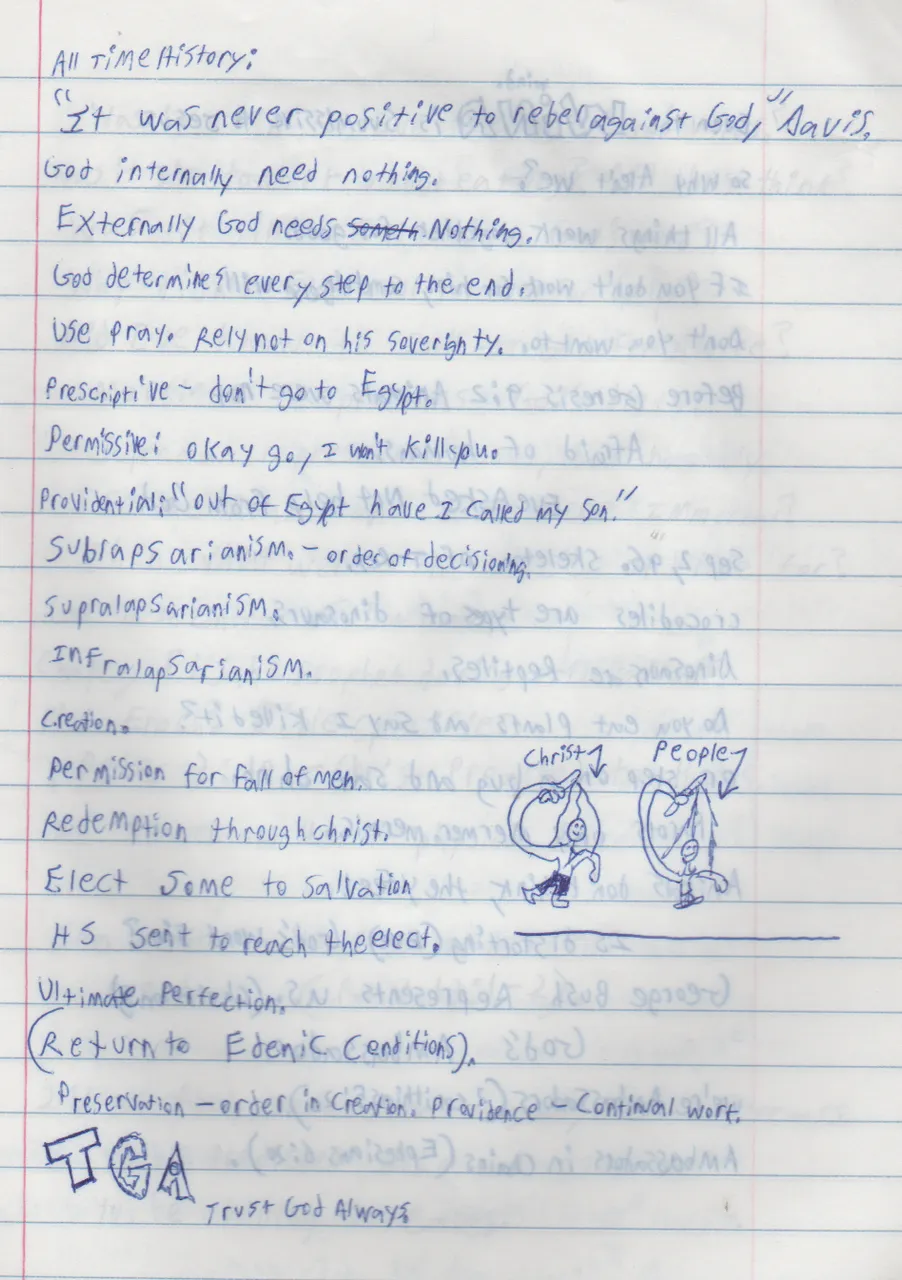 All Time History:
"It was never positive to rebel against God," Davis.
God internally need nothing.
Externally God needs someth Nothing.
God determines every step to the end.
Use pray. Rely not on his soverighty.
Prescriptive - don't go to Egypt.
Permissive: okay go, I won't kill you.
Providential: "out of Egypt have I called my son."
Sublapsarianism. - order of decisioning.
Supralapsarianism.
Infralapsarianism.
Creation.
Christ People
Permission for fall of men.
Redemption through christ.
Elect some to salvation
HS sent to reach the elect.
Ultimate Perfection.
(Return to Edenic Conditions).
Preservation - order in creation. Providence - Continual work.
TGA
Trust God Always.